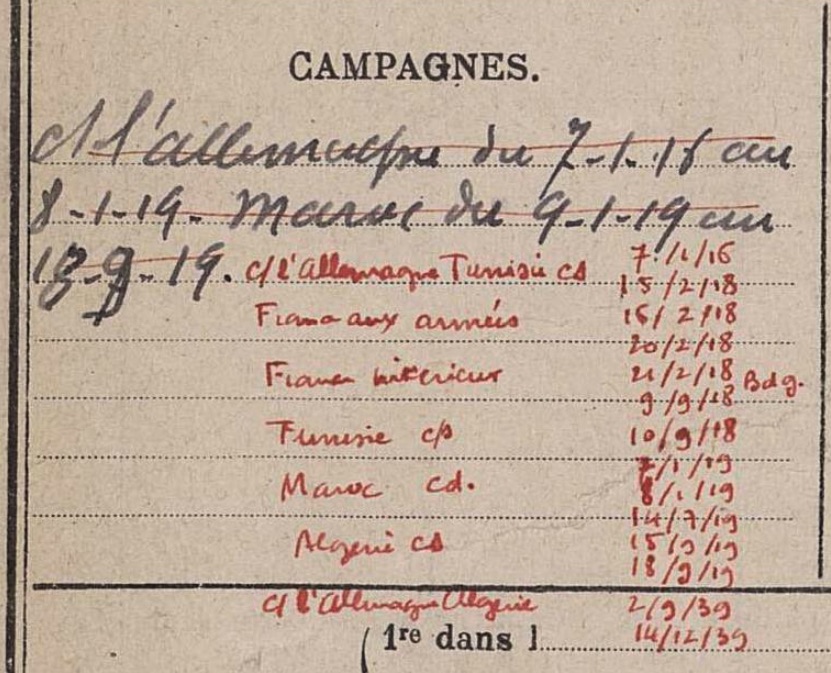 CAMPAGNES.
c/ l'allemagne du 7-1-16 au
8-1-19. Maroc du 9-1-19 au
18-9-19. c/ l'Allemagne Tunisie cd 7/1/16
15/2/18
France aux armées 16/2/18
20/2/18
France intérieur 21/2/18
9/9/18 Bdg.
Tunisie c/s 10/9/18
7/1/19
Maroc cd. 8/1/19
14/7/19
Algérie cd 15/9/19
18/9/19
c/ l'Allemagne Algérie 2/9/39
1re dans l 14/12/39